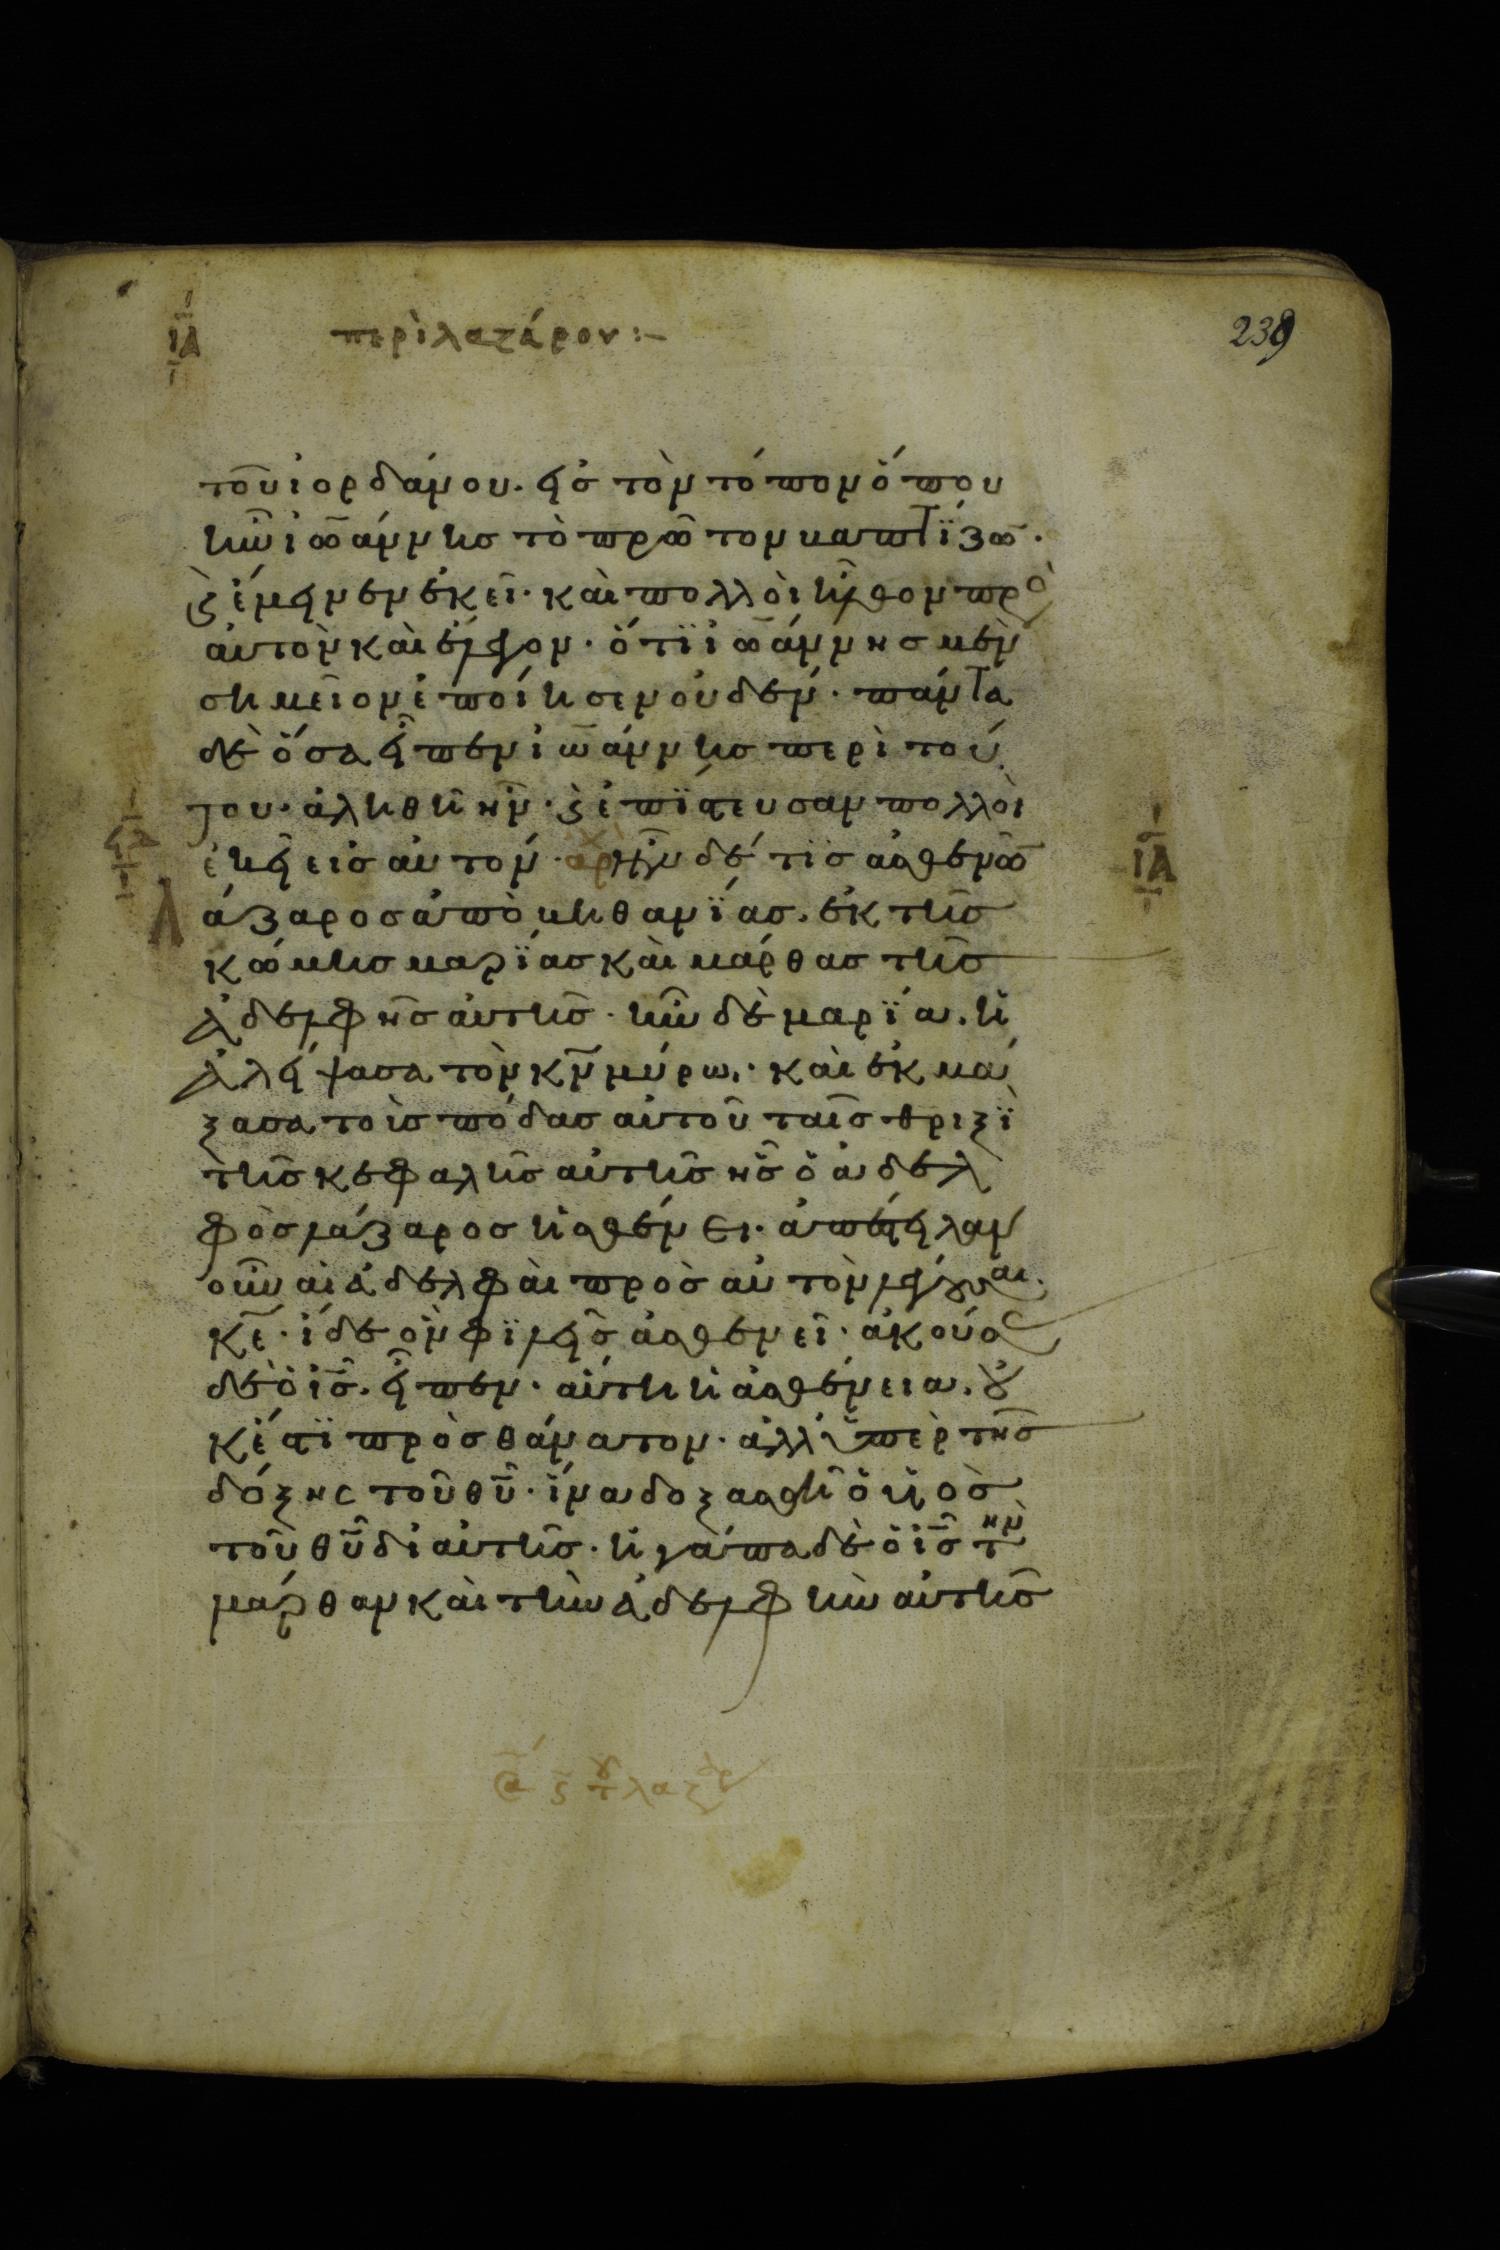 ια περὶ λαζάρου :–
239
τοῦ ἰορδάνου. εἰς τὸν τόπον ὅπου
ἦν ἰωάννης τὸ πρῶτον βαπτίζων.
ϗ ἔμεινεν ἐκεῖ· καὶ πολλοὶ ἦλθον πρὸ
αὐτὸν καὶ ἔλεγον· ὅτι ἰωάννης μὲν
σημεῖον ἐποίησεν οὐδέν· πάντα
δὲ ὅσα εἶπεν ἰωάννης περὶ τού
του· ἀληθῆ ἦν· ϗ ἐπίστευσαν πολλοὶ
ἐκεῖ εἰς αὐτόν· ἀρχ ἦν δέ τις ἀσθενῶ
λάζαρος ἀπὸ βηθανίας. ἐκ τῆς
ια
κώμης μαρίας καὶ μάρθας τῆς
ἀδελφῆς αὐτῆς· ἦν δὲ μαρία. ἡ
ἀλείψασα τὸν κ̅ν̅ μύρωι· καὶ ἐκμά
ξασα τοὺς πόδας αὐτοῦ ταῖς θριξὶ
τῆς κεφαλῆς αὐτῆς ἧς ὁ ἀδελ
φὸς λάζαρος ἠσθένει· ἀπέστειλαν
οὖν αἱ ἀδελφαὶ πρὸς αὐτὸν λέγουσαι.
κ̅ε̅· ἴδε ὃν φιλεῖς ἀσθενεῖ· ἀκούσας
δὲ ὁ ι̅ς̅. εἶπεν· αὕτη ἡ ἀσθένεια. οὐ
κ ἔστι πρὸς θάνατον· ἀλλ' ὑπὲρ τῆς
δόξης τοῦ θ̅υ̅· ἵνα δοξασθῆ ὁ υἱὸς
τοῦ θ̅υ̅ δι αὐτῆς· ἠγάπα δὲ ὁ ι̅ς̅ τὴν
μάρθαν καὶ τὴν ἀδελφὴν αὐτῆς